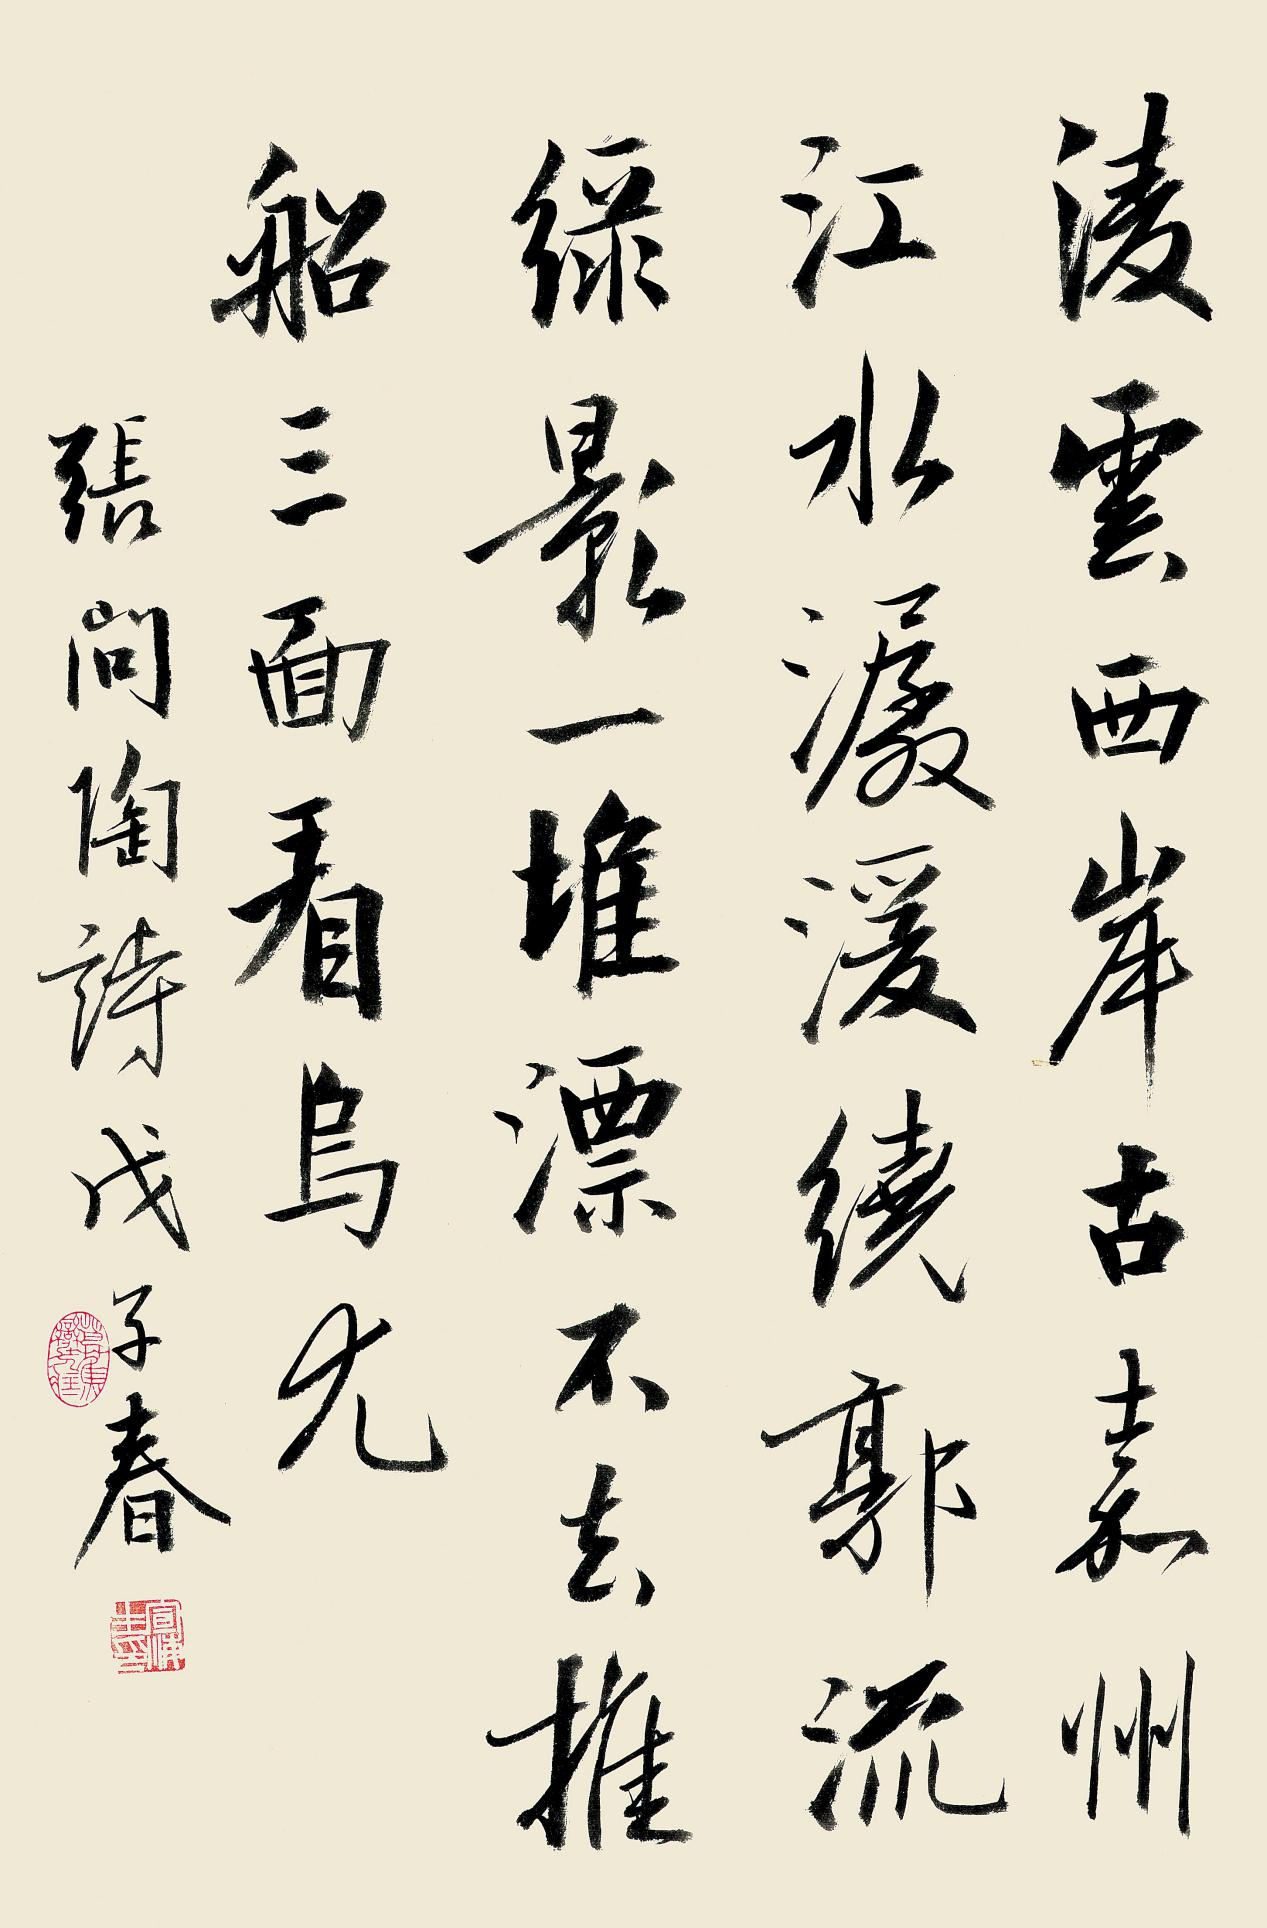 淩雲西岸古嘉州
江水潺湲繞郭流
綠影一堆漂不去
推船三面看烏尤
張問陶詩戊子春